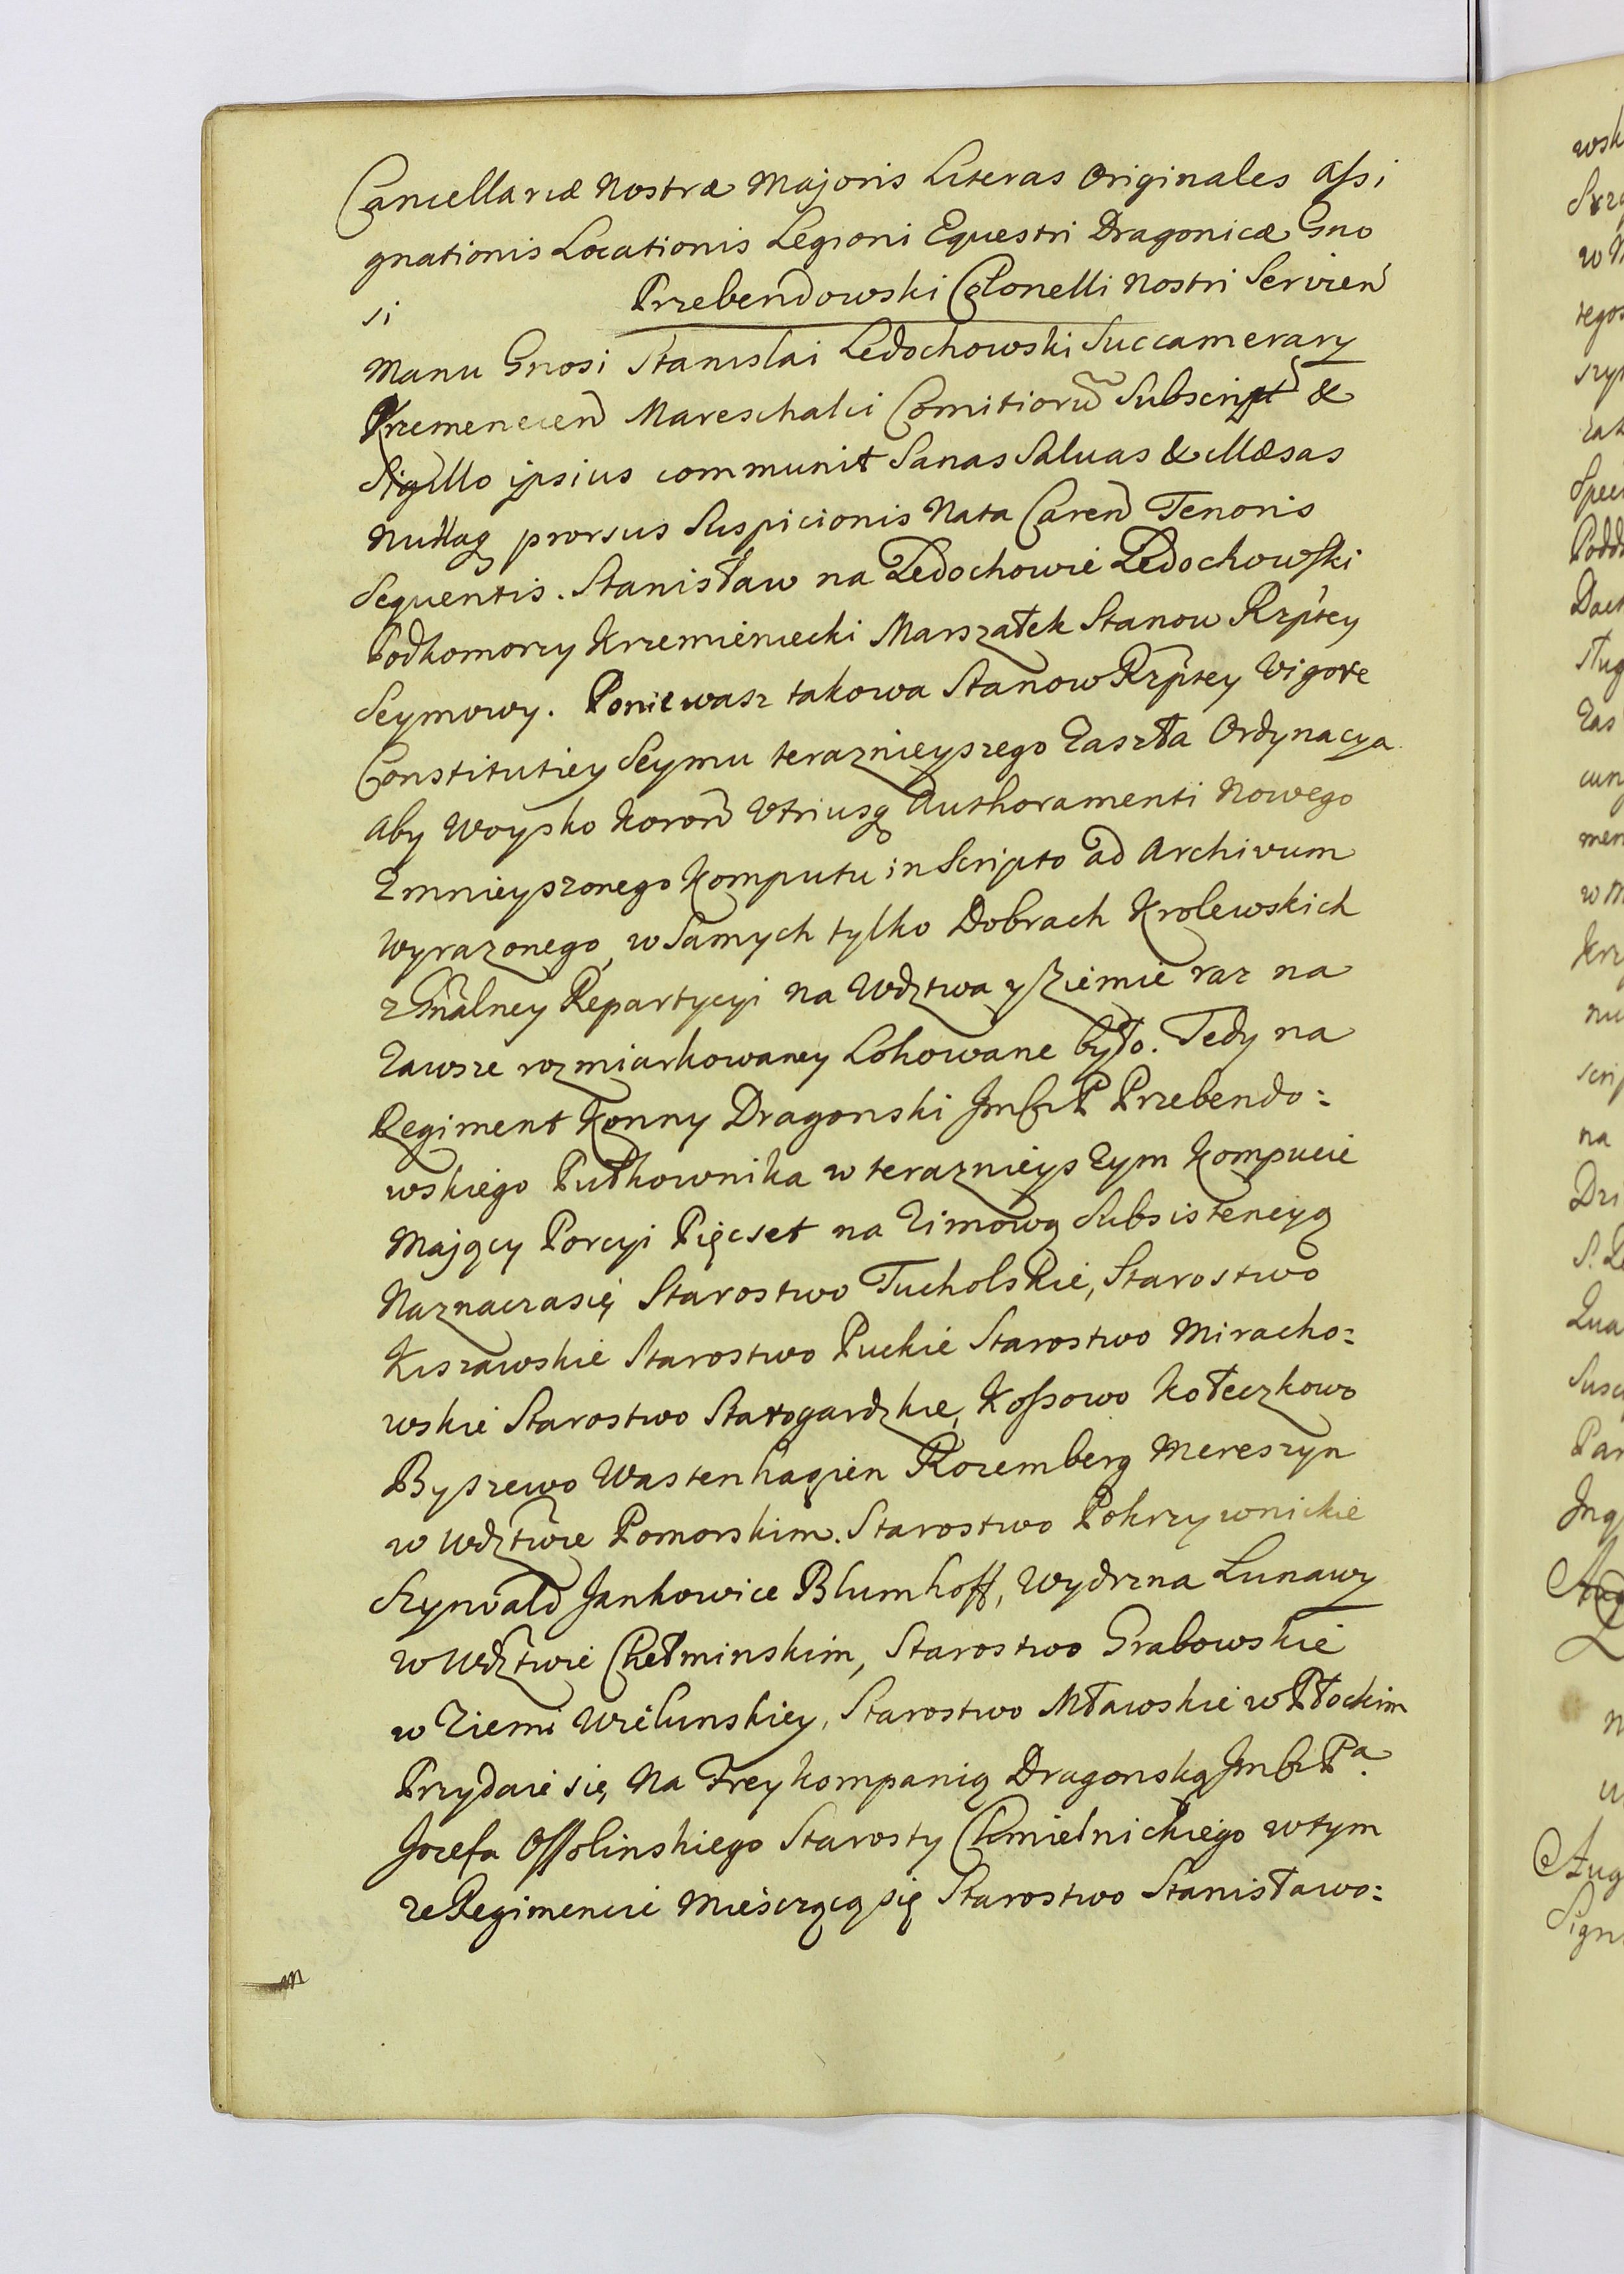 Cancellariæ Nostræ Majoris Literas Originales Assi
gnationis Locationis Legioni Equestri Dragonicæ Gno
si Przebendowski Colonelli Nostri Servien
Manu Gnosi Stanislai Ledochowski Succamerary
Krzemenecen Mareschalci Comitioru Subscript &
Sigillo ipsius communit Sanas Saluas & Illæsas
Nullaq prorsus Suspicionis Nota Caren Tenoris
Sequentis. Stanisław na Ledochowie Ledochowski
Podkomorzy Krzemieniecki Marszałek Stanow Rzptey
Seymowy. Poniewasz takowa Stanow Rzptey Vigore
Constitutiey Seymu teraznieyszego Zaszła Ordynacya
Aby Woysko Koron Utriusq Authoramenti Nowego
Zmnieyszonego Komputu in Scripto ad Archivum
wyrazonego, w Samych tylko Dobrach Krolewskich
z Gnalney Repartycyi na Wdztwa y Ziemie raz na
Zawsze rozmiarkowaney Lokowane było. Tedy na
Regiment Konny Dragonski Jm&P Przebendo:
wskiego Pułkownika w teraznieyszym Kompucie
Mający Porcyi Pięcset na Zimową Subsistencyą
Naznacza się Starostwo Tucholskie, Starostwo
Kiszawskie Starostwo Puckie Starostwo Miracho:
wskie Starostwo Starogardzkie, Kossowo Kołeczkowo
Byszewo Wastenhagien Rozemberg Mereszyn
w Wdztwie Pomorskim. Starostwo Pokrzywnickie
Szynvald Jankowice Blumhoff, Wydrzna Lunawy
w Wdztwie Chełminskim, Starostwo Grabowskie
w Ziemi Wielunskiey, Starostwo Mławskie w Płockim
Przydaie się, Na Freykompanią Dragonską Jm&Pa.
Jozefa Ossolinskiego Starosty Chmielnickiego w tym
ze Regimencie Mieszczącą się Starostwo Stanisławo: